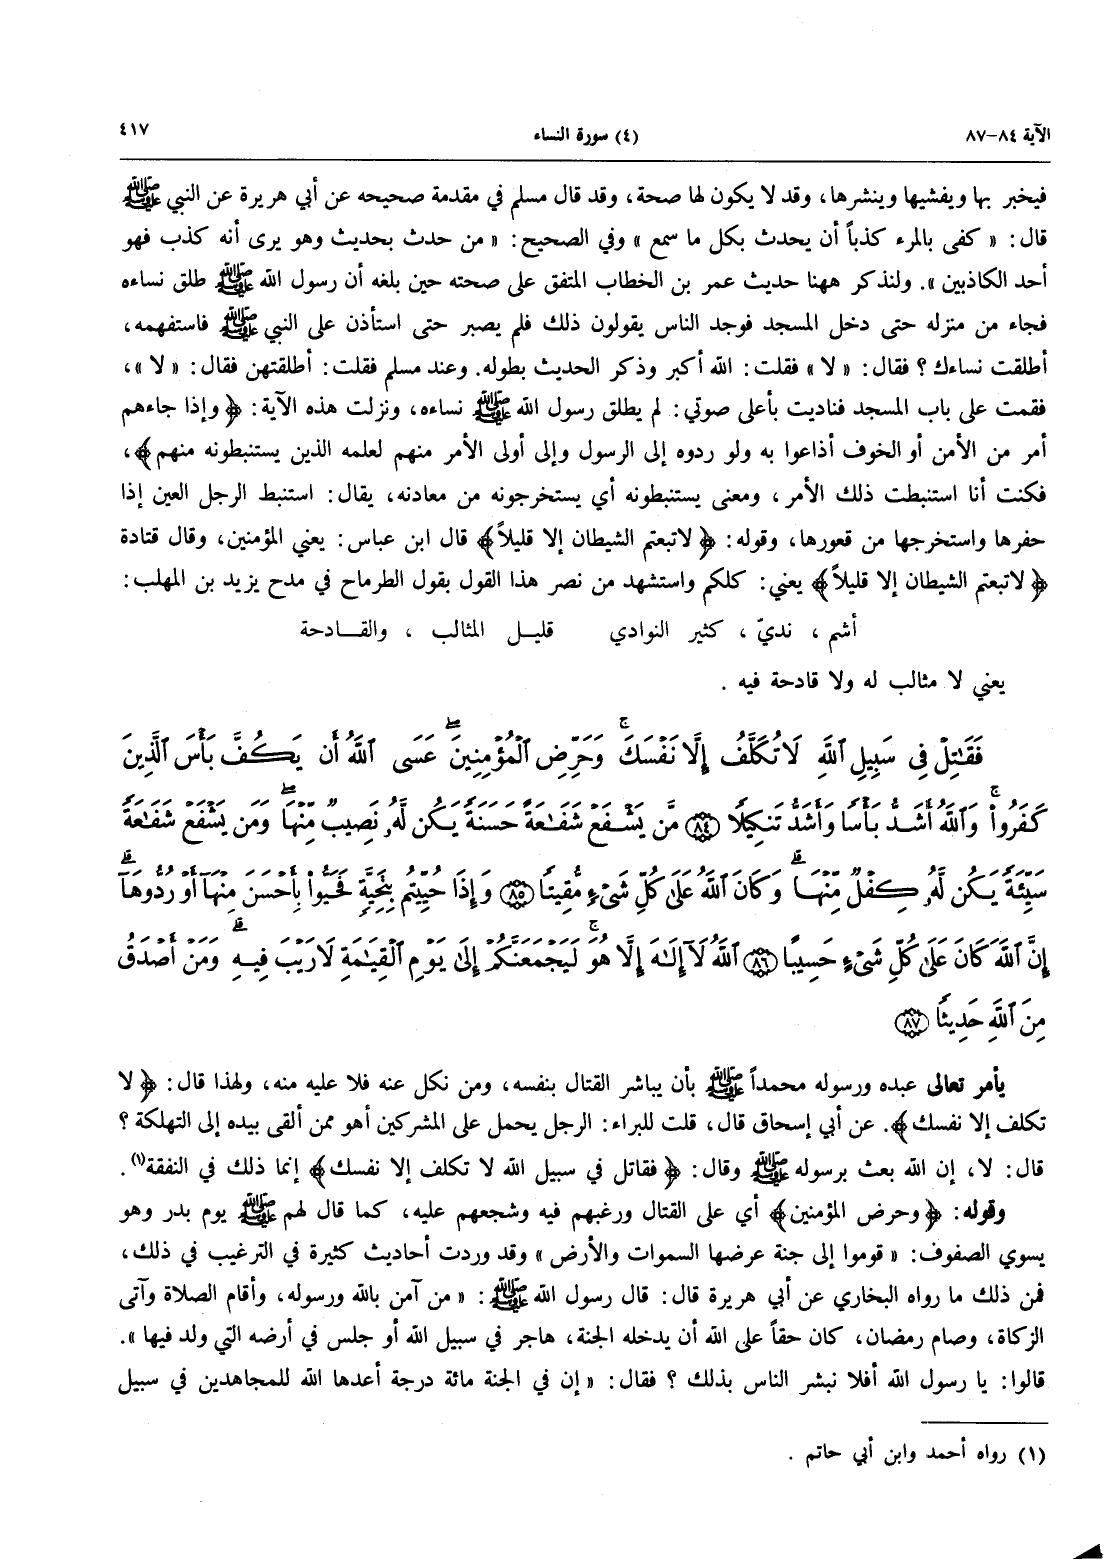 الآية ٨٤-٨٧
(٤) سورة النساء
٤١٧
فيخبر بها ويفشيها وينشرها، وقد لا يكون لها صحة، وقد قال مسلم في مقدمة صحيحه عن أبي هريرة عن النبي ﷺ
قال: « كفى بالمرء كذباً أن يحدث بكل ما سمع » وفي الصحيح: « من حدث بحديث وهو يرى أنه كذب فهو
أحد الكاذبين ». ولنذكر ههنا حديث عمر بن الخطاب المتفق على صحته حين بلغه أن رسول الله ﷺ طلق نساءه
فجاء من منزله حتى دخل المسجد فوجد الناس يقولون ذلك فلم يصبر حتى استأذن على النبي ﷺ فاستفهمه،
أطلقت نساءك ؟ فقال: « لا » فقلت: الله أكبر وذكر الحديث بطوله. وعند مسلم فقلت: أطلقتهن فقال: « لا »،
فقمت على باب المسجد فناديت بأعلى صوتي: لم يطلق رسول الله ﷺ نساءه، ونزلت هذه الآية: ﴿ وإذا جاءهم
أمر من الأمن أو الخوف أذاعوا به ولو ردوه إلى الرسول وإلى أولى الأمر منهم لعلمه الذين يستنبطونه منهم﴾،
فكنت أنا استنبطت ذلك الأمر، ومعنى يستنبطونه أي يستخرجونه من معادنه، يقال: استنبط الرجل العين إذا
حفرها واستخرجها من قعورها، وقوله: ﴿ لاتبعتم الشيطان إلا قليلاً﴾ قال ابن عباس: يعني المؤمنين، وقال قتادة
﴿ لاتبعتم الشيطان إلا قليلاً﴾ يعني: كلكم واستشهد من نصر هذا القول بقول الطرماح في مدح يزيد بن المهلب:
أشم ، نديّ ، كثير النوادي قليل المثالب ، والقادحة
يعني لا مثالب له ولا قادحة فيه .
فَقَٰتِلْ فِى سَبِيلِ ٱللَّهِ لَا تُكَلَّفُ إِلَّا نَفْسَكَ ۚ وَحَرِّضِ ٱلْمُؤْمِنِينَ ۖ عَسَى ٱللَّهُ أَن يَكُفَّ بَأْسَ ٱلَّذِينَ
كَفَرُوا۟ ۚ وَٱللَّهُ أَشَدُّ بَأْسًا وَأَشَدُّ تَنكِيلًا ﴿٨٤﴾ مَّن يَشْفَعْ شَفَٰعَةً حَسَنَةً يَكُن لَّهُۥ نَصِيبٌ مِّنْهَا ۖ وَمَن يَشْفَعْ شَفَٰعَةً
سَيِّئَةً يَكُن لَّهُۥ كِفْلٌ مِّنْهَا ۗ وَكَانَ ٱللَّهُ عَلَىٰ كُلِّ شَىْءٍ مُّقِيتًا ﴿٨٥﴾ وَإِذَا حُيِّيتُم بِتَحِيَّةٍ فَحَيُّوا۟ بِأَحْسَنَ مِنْهَآ أَوْ رُدُّوهَآ ۗ
إِنَّ ٱللَّهَ كَانَ عَلَىٰ كُلِّ شَىْءٍ حَسِيبًا ﴿٨٦﴾ ٱللَّهُ لَآ إِلَٰهَ إِلَّا هُوَ ۚ لَيَجْمَعَنَّكُمْ إِلَىٰ يَوْمِ ٱلْقِيَٰمَةِ لَا رَيْبَ فِيهِ ۗ وَمَنْ أَصْدَقُ
مِنَ ٱللَّهِ حَدِيثًا ﴿٨٧﴾
يأمر تعالى عبده ورسوله محمداً ﷺ بأن يباشر القتال بنفسه، ومن نكل عنه فلا عليه منه، ولهذا قال: ﴿ لا
تكلف إلا نفسك﴾. عن أبي إسحاق قال، قلت للبراء: الرجل يحمل على المشركين أهو ممن ألقى بيده إلى التهلكة ؟
قال: لا، إن الله بعث برسوله ﷺ وقال: ﴿ فقاتل في سبيل الله لا تكلف إلا نفسك﴾ إنما ذلك في النفقة(١).
وقوله: ﴿ وحرض المؤمنين﴾ أي على القتال ورغبهم فيه وشجعهم عليه، كما قال لهم ﷺ يوم بدر وهو
يسوي الصفوف: « قوموا إلى جنة عرضها السموات والأرض » وقد وردت أحاديث كثيرة في الترغيب في ذلك،
فمن ذلك ما رواه البخاري عن أبي هريرة قال: قال رسول الله ﷺ: « من آمن بالله ورسوله، وأقام الصلاة وآتى
الزكاة، وصام رمضان، كان حقاً على الله أن يدخله الجنة، هاجر في سبيل الله أو جلس في أرضه التي ولد فيها ».
قالوا: يا رسول الله أفلا نبشر الناس بذلك ؟ فقال: « إن في الجنة مائة درجة أعدها الله للمجاهدين في سبيل
(١) رواه أحمد وابن أبي حاتم .